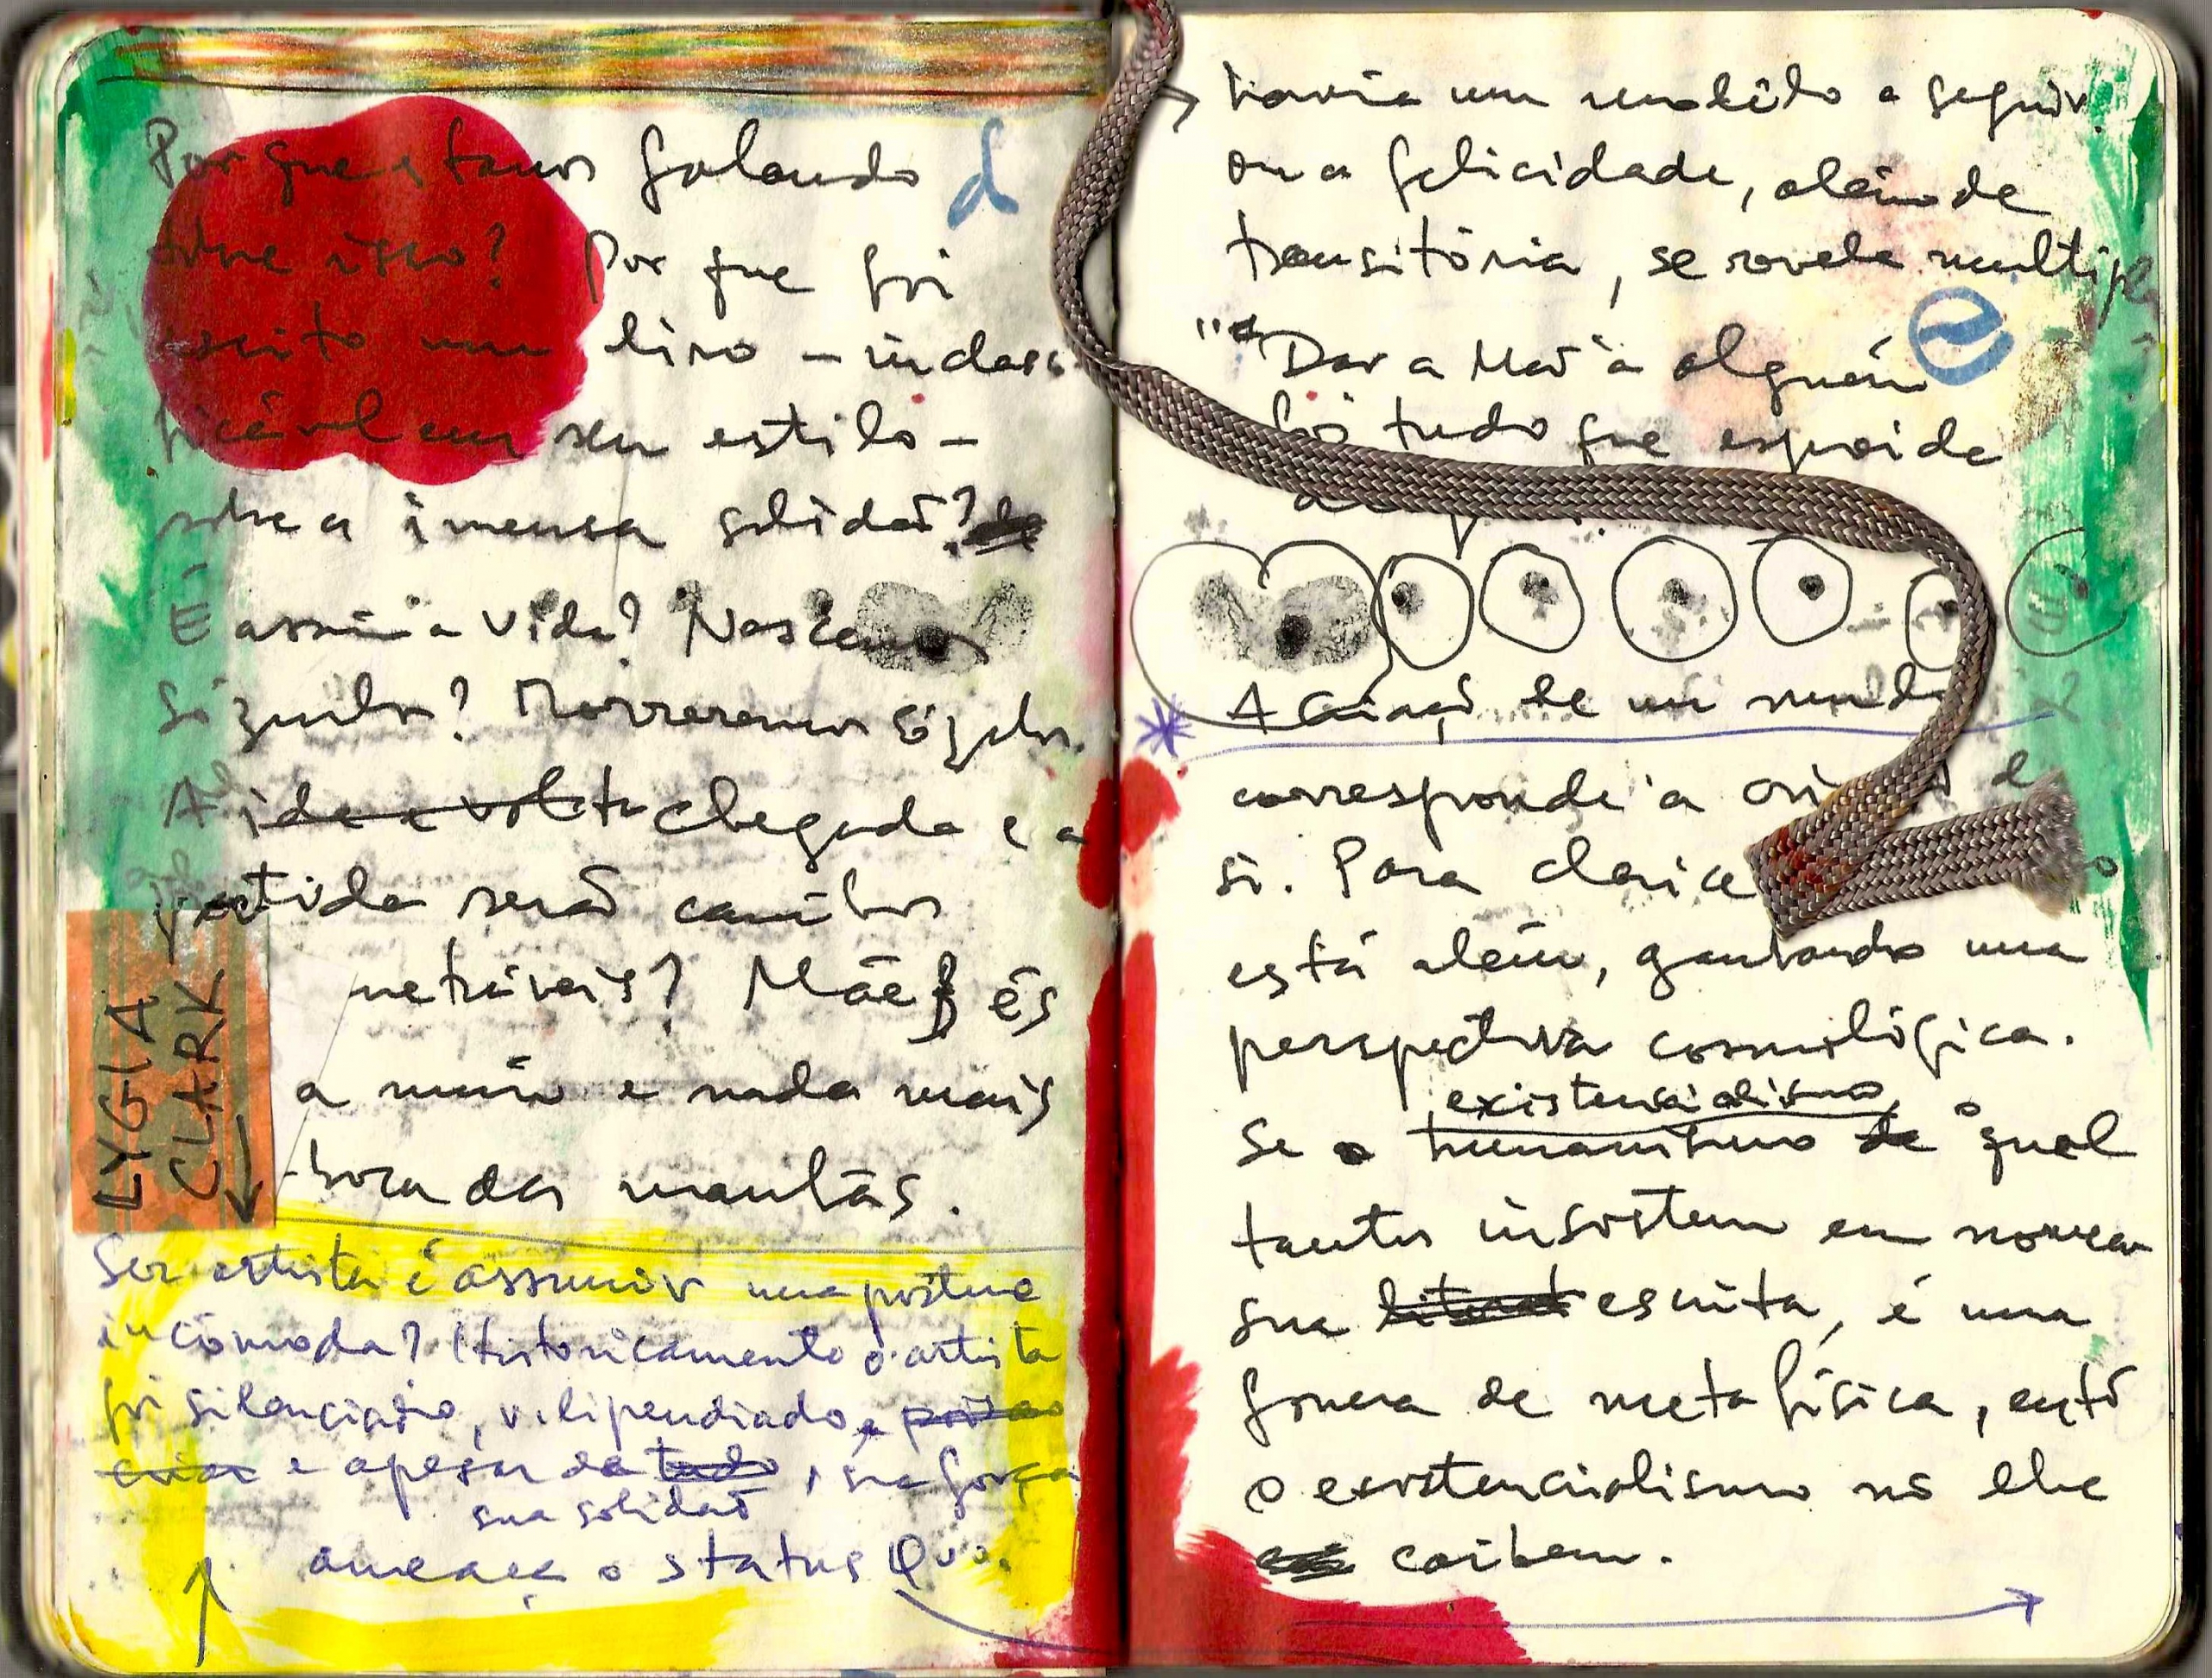 Por que estamos falando d
sobre isso? Por que foi
escrito um livro – inclassi-
ficável em seu estilo –
sobre a imensa solidão? de
É assim a vida? Nascemos
sózinhos? Morreremos sózinhos.
A ida e volta chegada e a
partida serão caminhos
netráveis? Mãe és
a mãe e nada mais
hora das manhãs.
LYGIA
CLARK
Ser artista é assumir uma postura
incômoda? Historicamente o artista
foi silenciado, vilipendiado, e
criar e apesar de tudo, sua força
sua solidão
ameaça o status Quo.
havia um modelo a seguir
ou a felicidade, além de
transitória, se revela multipla
"Dar a Mão à alguém e
foi tudo que esperei da
A Criação de um mundo
corresponde à de
si. Para Clarice
está além, ganhando uma
perspectiva cosmológica.
existencialismo,
Se o humanismo de o qual
tantos insistem em nomear
sua literat escrita, é uma
forma de metafísica, então
o existencialismo não lhe
caibam.